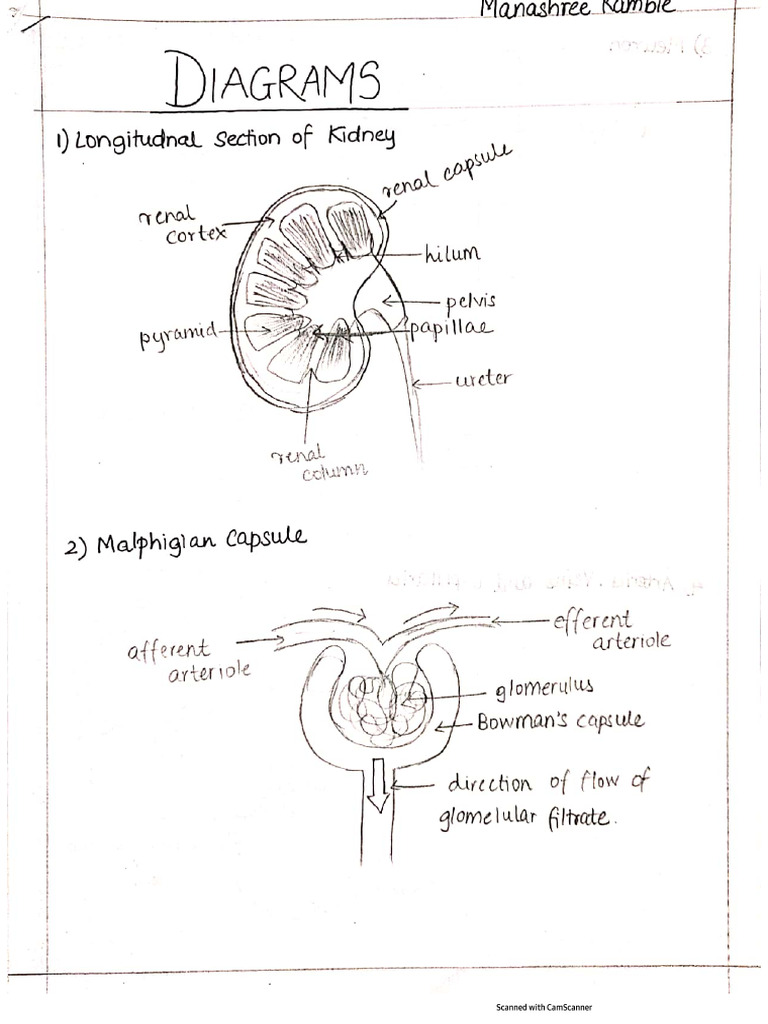 Manashree Kamble
DIAGRAMS
1) Longitudnal section of Kidney
renal capsule
renal
cortex
hilum
pelvis
pyramid
papillae
ureter
renal
column
2) Malphigian capsule
efferent
arteriole
afferent
arteriole
glomerulus
Bowman's capsule
direction of flow of
glomelular filtrate.
Scanned with CamScanner